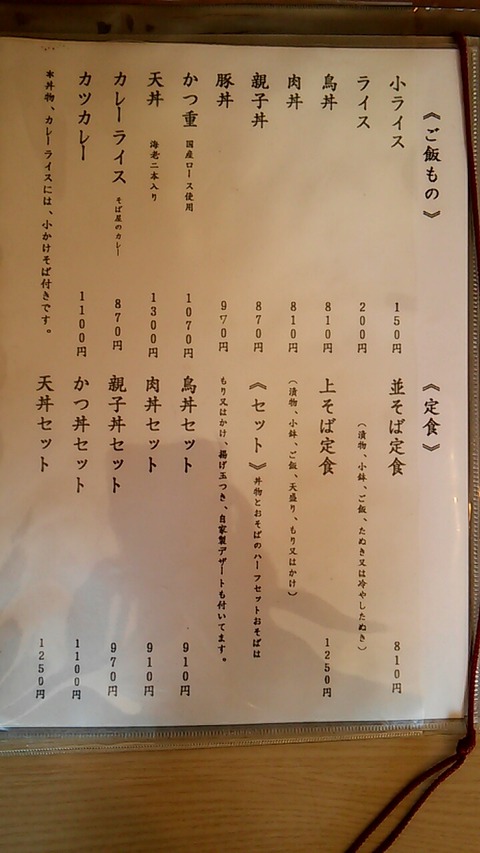 《ご飯もの》
小ライス 150円
ライス 200円
鳥丼 810円
肉丼 810円
親子丼 870円
豚丼 970円
かつ重 国産ロース使用 1070円
天丼 海老二本入り 1300円
カレーライス そば屋のカレー 870円
カツカレー 1100円
*丼物、カレーライスには、小かけそば付きです。
《定食》
並そば定食 810円
(漬物、小鉢、ご飯、たぬき又は冷やしたぬき)
上そば定食 1250円
(漬物、小鉢、ご飯、天盛り、もり又はかけ)
《セット》丼物とおそばのハーフセットおそばは
もり又はかけ、揚げ玉つき、自家製デザートも付いてます。
鳥丼セット 910円
肉丼セット 910円
親子丼セット 970円
かつ丼セット 1100円
天丼セット 1250円